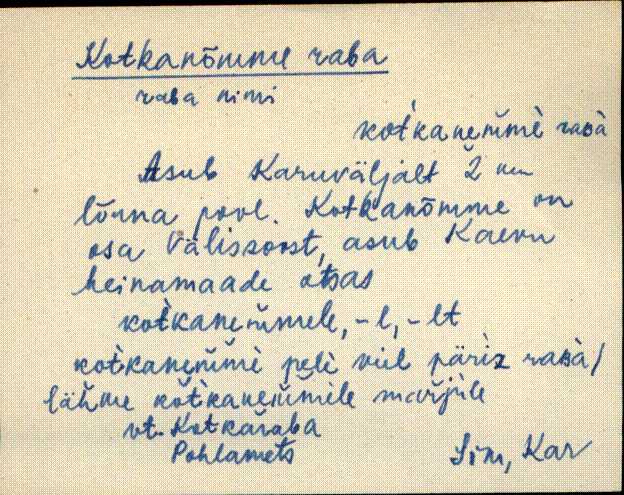 Kotkanõmme raba
raba nimi
kot̀kanem̆mè raʙà
Asub Karuväljalt 2 km
lõuna pool. Kotkanõmme on
osa Välissoost, asub Kaevu
heinamaade otsas
kot̀kanem̆mele, -l, -lt
kot̀kanem̆mè pelè viel päriz raʙà/
lähme kot̀kanem̆mile marjule
vt. Kotkaraba
Pohlamets
Sim, Kar